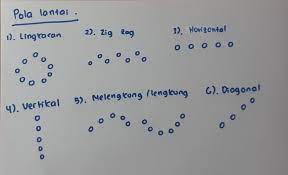 Pola lantai.
1). Lingkaran
2). Zig zag
3). Horizontal
4). Vertikal
5). Melengkung /lengkung
6). Diagonal